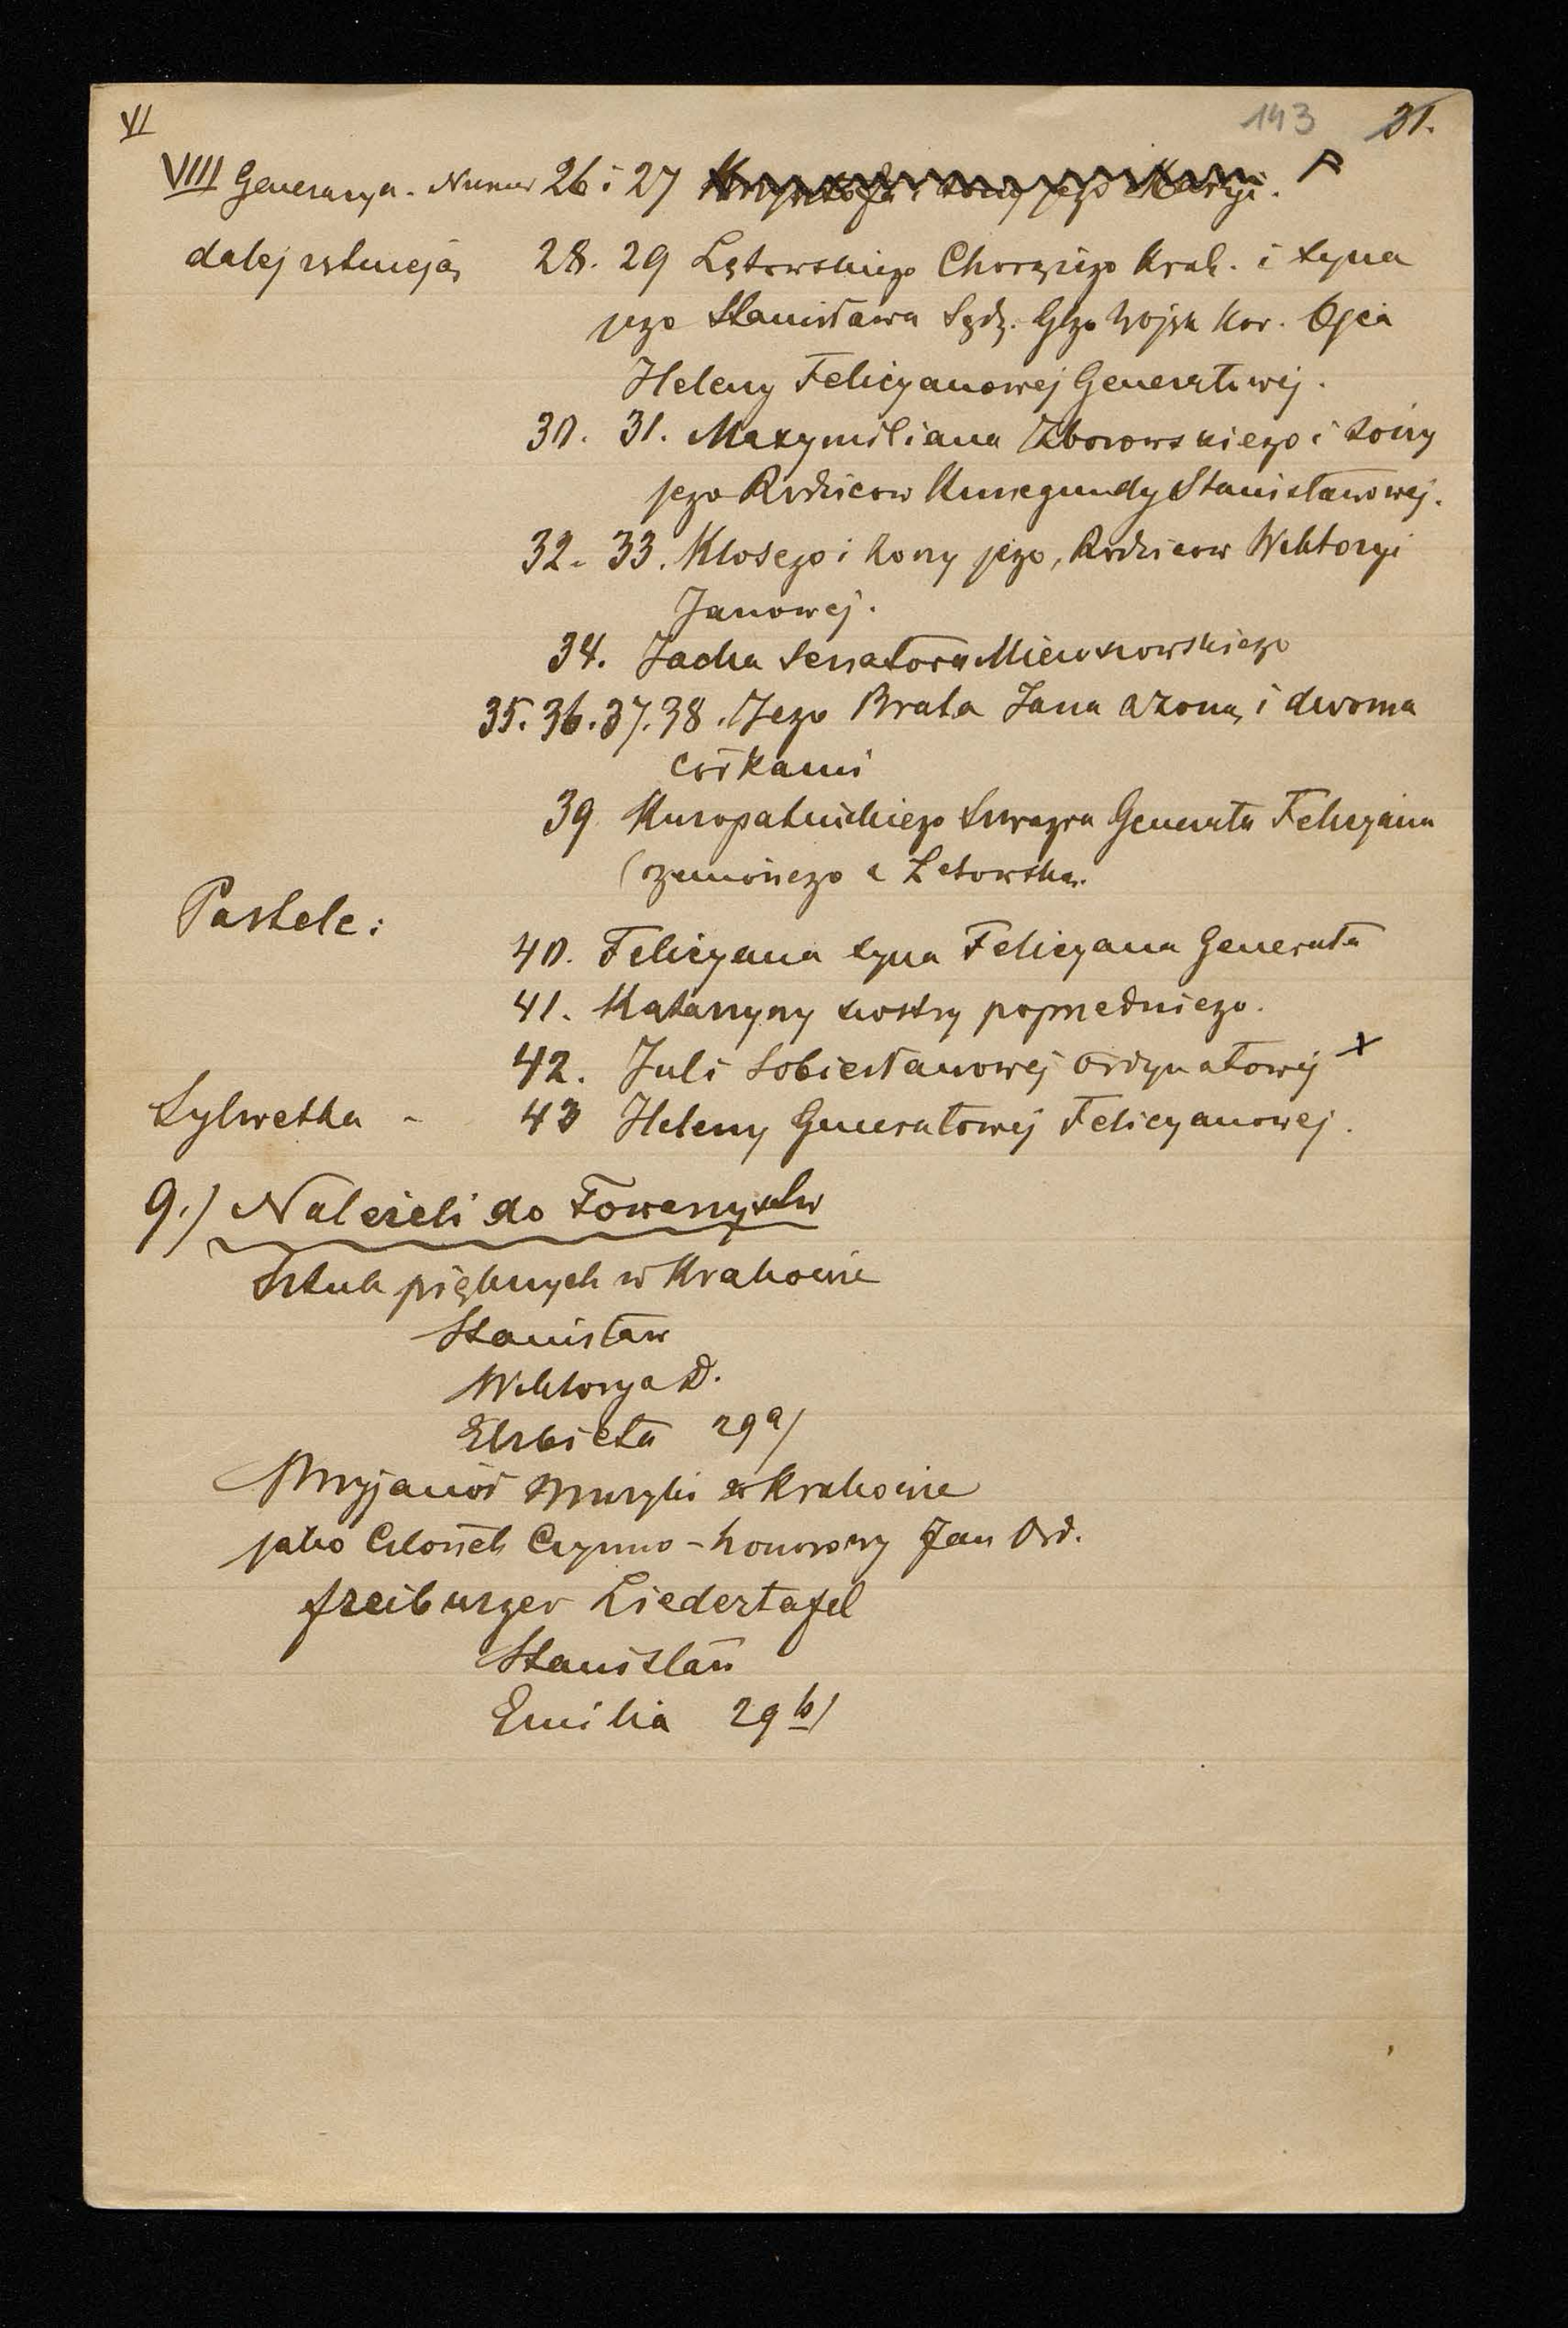 VI
143 31.
VIII Generacya. Numer 26 i 27 Krzysztofa i żony jego Maryi.
dalej istnieją 28. 29 Lętowskiego Chorążego Krak. i syna
jego Stanisława Sędz. Glgo Wojsk Kor. Ojca
Heleny Felicyanowej Generałowej.
30. 31. Maxymiliana Zborowskiego i żony
jego Rodziców Kunegundy Stanisławowej.
32. 33. Klosego i żony jego, Rodziców Wiktoryi
Janowej.
34. Jacka Senatora Mieroszowskiego
35. 36. 37. 38. Jego Brata Jana z żoną i dwoma
córkami
39 Kuropatnickiego Szwagra Generała Felicyana
(żenionego z Letowską.
Pastele:
40. Felicyana syna Felicyana Generała
41. Katarzyny siostry poprzedniego.
42. Juli Sobiesławowej Ordynatowej x
Sylwetka - 43 Heleny Generałowej Felicyanowej.
9.) Należeli do Towarzystw
Sztuk pięknych w Krakowie
Stanisław
Wiktorya D.
Elżbieta 29 a/
Przyjaciół Muzyki w Krakowie
jako Członek Czynno-honorowy Jan Ord.
freiburger Liedertafel
Stanisław
Emilia 29 b/